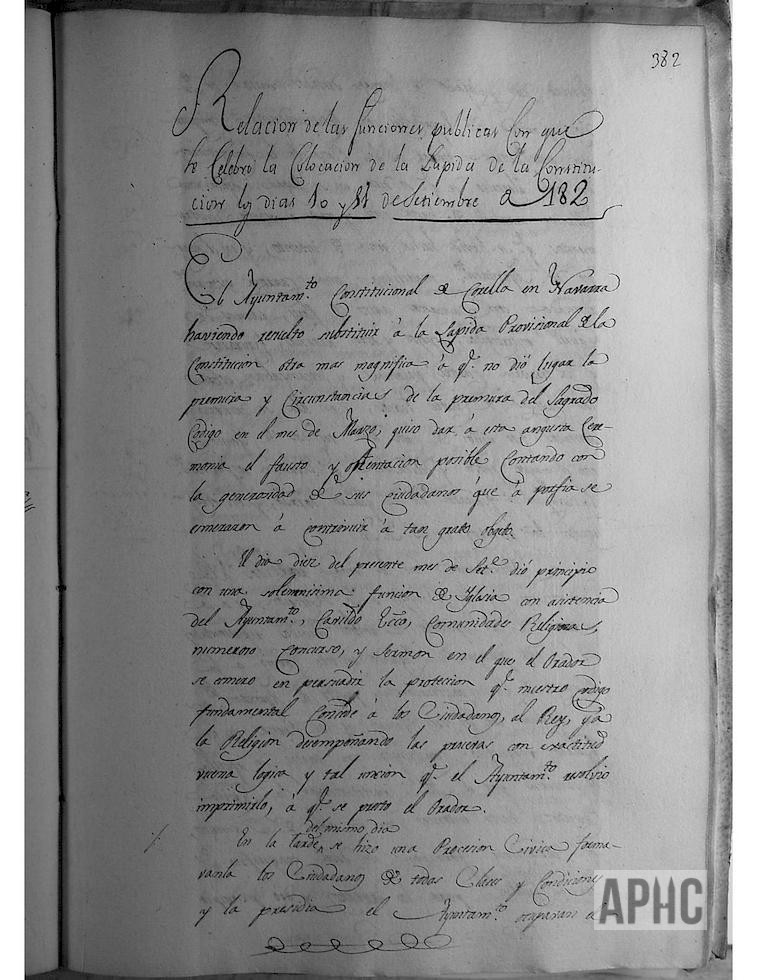 382
Relacion de las funciones publicas con que
se Celebró la Colocacion de la Lapida de la Constitu-
cion los dias 10 y 11 de Setiembre 182
El Ayuntam.to Constitucional de Corella en Navarra
haviendo resuelto substituir á la Lapida Provisional de la
Constitucion otra mas magnifica á q.e no dió lugar la
premura y Circunstancias de la premura del Sagrado
Codigo en el mes de Marzo, quiso dar á esta augusta Cere-
monia el fausto y ostentacion posible Contando con
la generosidad de sus ciudadanos que á porfia se
esmeraron á contrivuir á tan grato objeto.
El dia diez del presente mes de Set.e dió principio
con una solemnisima funcion de Yglesia con asistencia
del Ayuntam.to, Cavildo Ecco, Comunidades Religiosas,
numeroso Concurso, y Sermon en el que el Orador
se esmero en persuadir la proteccion q.e nuestro codigo
fundamental Concede á los Ciudadanos, al Rey, y á
la Religion desempeñando las pruevas con exactitud
vuena logica y tal uncion q.e el Ayuntam.to resolvio
imprimirlo, á q.e se presto el Orador.
del mismo dia
En la tarde se hizo una Procesion Civica forma-
vanla los Ciudadanos de todas Clases y Condiciones
y la presidia el Ayuntam.to
APHC